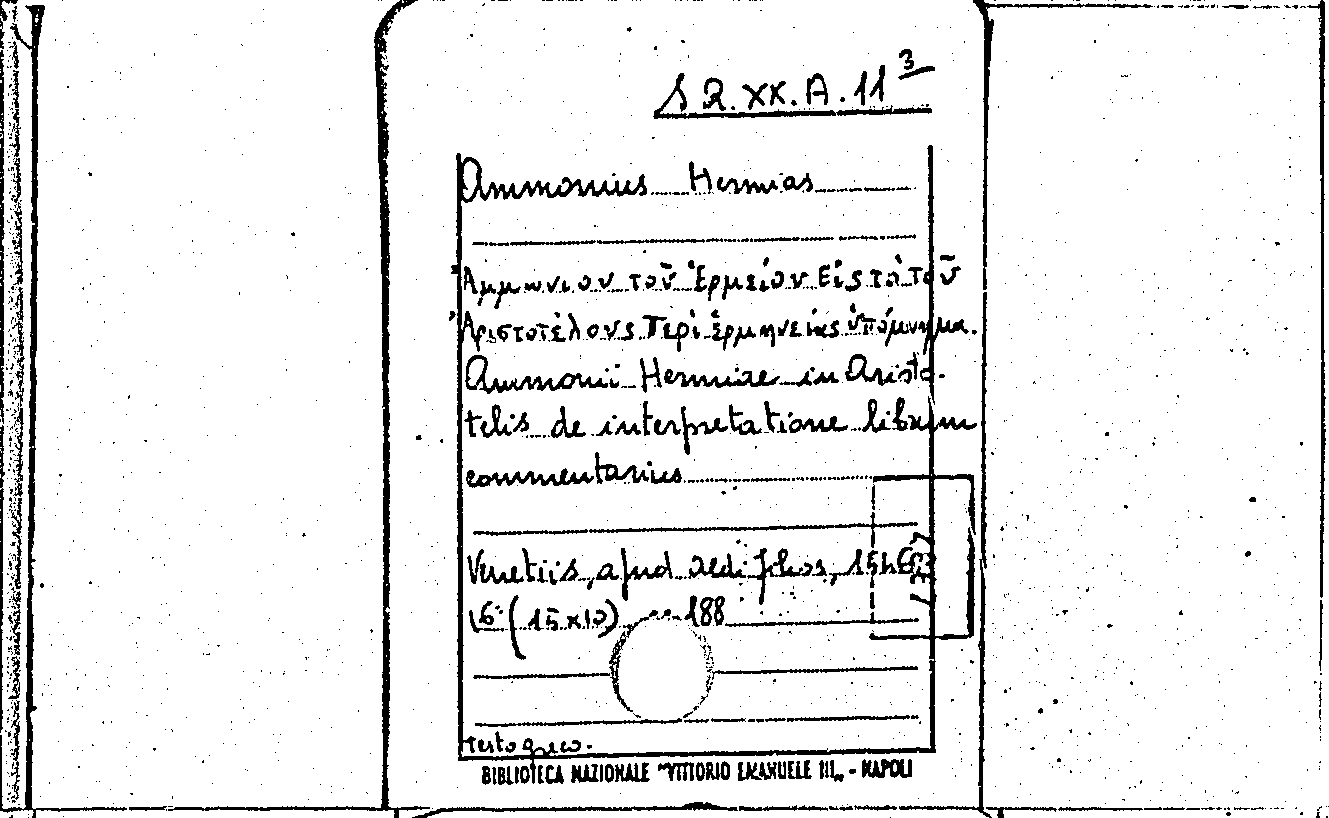 S Q. XX. A. 11³
Ammonius Hermias
Ἀμμωνίου τοῦ Ἑρμείου Εἰς τὸ τοῦ
Ἀριστοτέλους Περὶ ἑρμηνείας ὑπόμνημα.
Ammonii Hermiae in Aristo-
telis de interpretatione librum
commentarius
Venetiis, apud Aedi filios, 1546
16° (15x10) cc. 188
Testo greco.
BIBLIOTECA NAZIONALE "VITTORIO EMANUELE III„ - NAPOLI